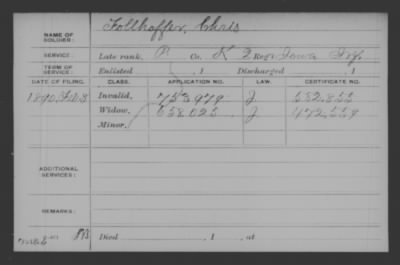 Follhoffer, Chris
NAME OF
SOLDIER:
SERVICE: Late rank, P Co. K 2 Reg't Iowa Inf.
TERM OF
SERVICE: Enlisted , 1 Discharged , 1
DATE OF FILING. CLASS. APPLICATION NO. LAW. CERTIFICATE NO.
1890 Invalid, 753979 J 582.855
Widow, 658.025 J 472.559
Minor,
ADDITIONAL
SERVICES:
REMARKS:
Died , 1 , at